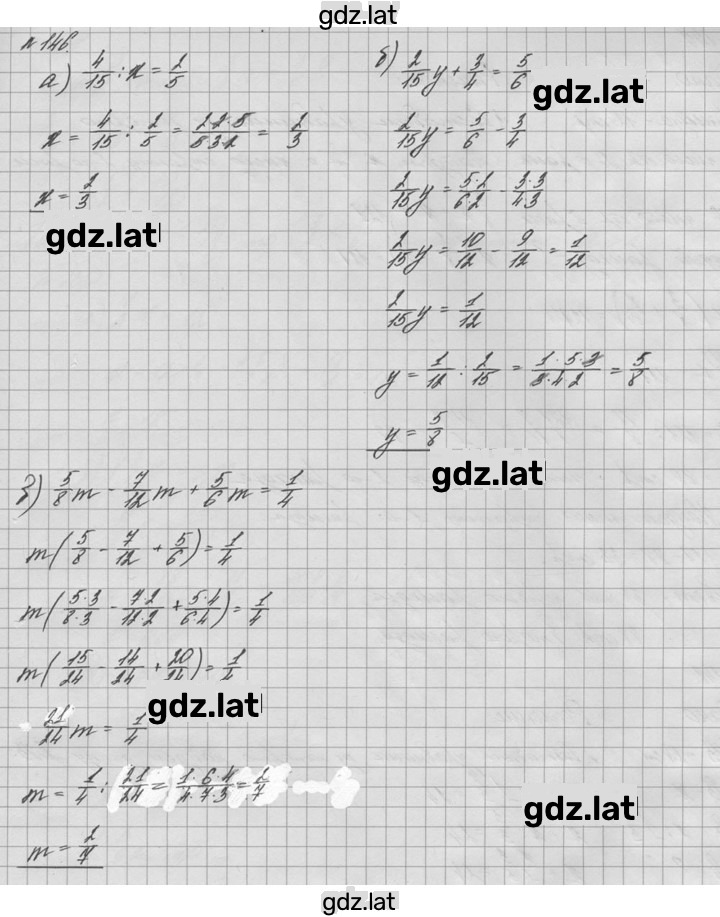 gdz.lat
№ 146.
а) 4/15 : x = 2/5
x = 4/15 : 2/5 = 2·2·5/5·3·2 = 2/3
x = 2/3
gdz.lat
б) 2/15 y + 3/4 = 5/6
gdz.lat
2/15 y = 5/6 - 3/4
2/15 y = 5·2/6·2 - 3·3/4·3
2/15 y = 10/12 - 9/12 = 1/12
2/15 y = 1/12
y = 1/12 : 2/15 = 1·5·3/3·4·2 = 5/8
y = 5/8
gdz.lat
в) 5/8 m - 7/12 m + 5/6 m = 1/4
m(5/8 - 7/12 + 5/6) = 1/4
m(5·3/8·3 - 7·2/12·2 + 5·4/6·4) = 1/4
m(15/24 - 14/24 + 20/24) = 1/4
gdz.lat
21/24 m = 1/4
m = 1/4 : 21/24 = 1·6·4/4·7·3 = 2/7
m = 2/7
gdz.lat
gdz.lat